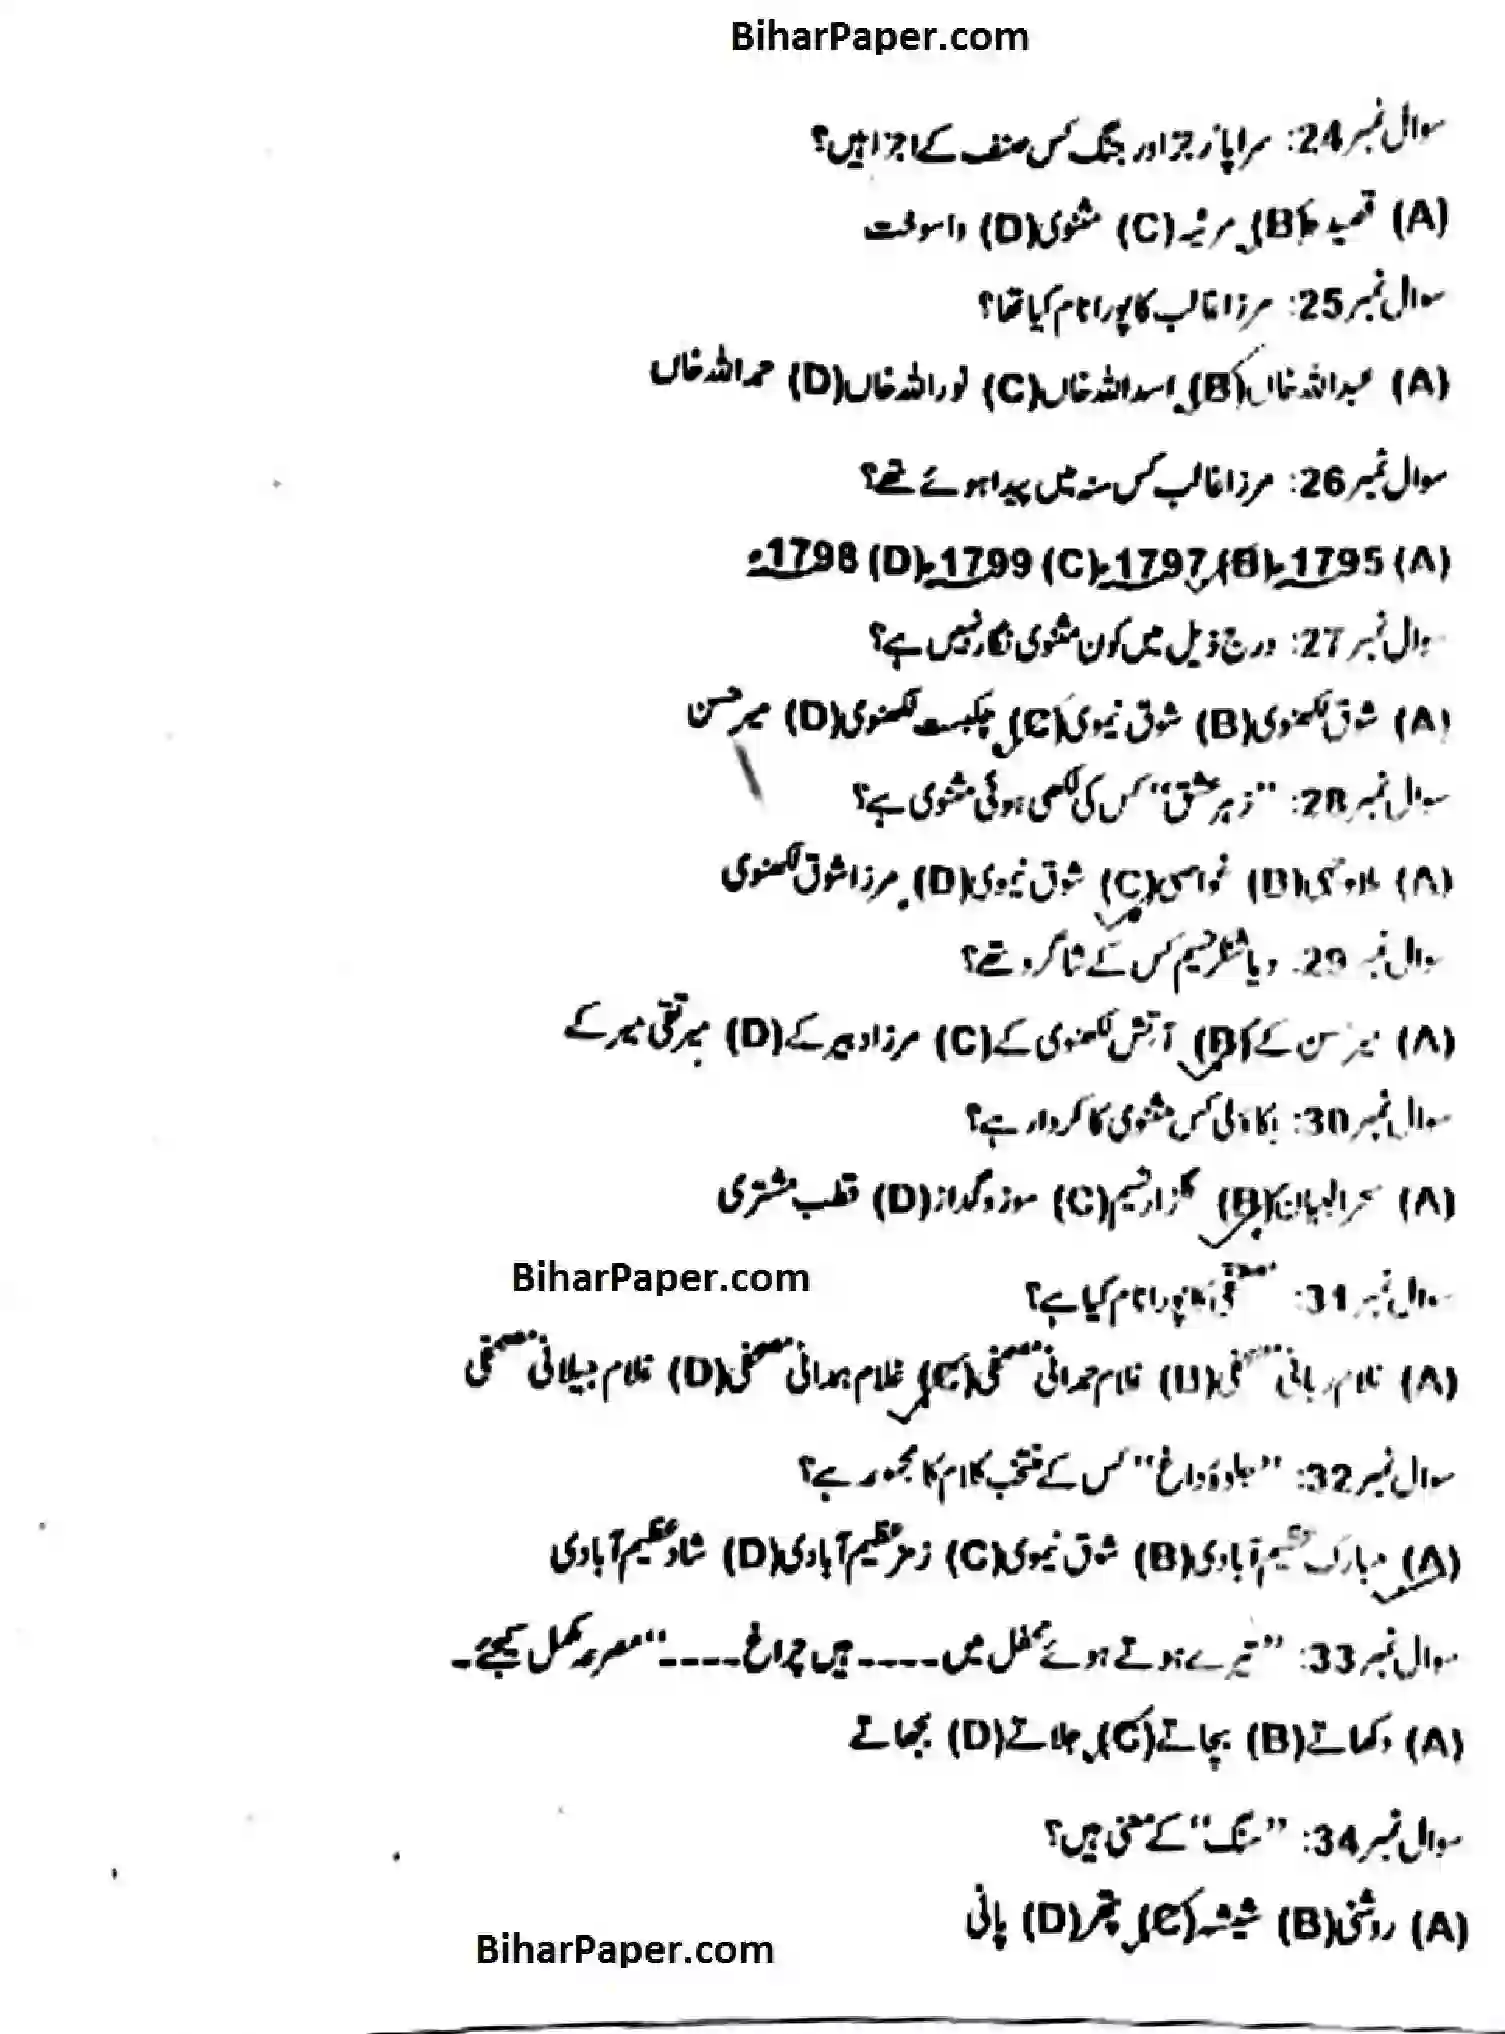 BiharPaper.com
سوال نمبر 24: سراپا، رجز اور جنگ کس صنف کے اجزا ہیں؟
(A) قصیدہ (B) مرثیہ (C) مثنوی (D) واسوخت
سوال نمبر 25: مرزا غالب کا پورا نام کیا تھا؟
(A) عبداللہ خاں (B) اسد اللہ خاں (C) نور اللہ خاں (D) حمد اللہ خاں
سوال نمبر 26: مرزا غالب کس سنہ میں پیدا ہوئے تھے؟
(A) 1795ء (B) 1797ء (C) 1799ء (D) 1798ء
سوال نمبر 27: درج ذیل میں کون مثنوی نگار نہیں ہے؟
(A) شوق لکھنوی (B) شوق نیموی (C) چکبست لکھنوی (D) میر حسن
سوال نمبر 28: "زہر عشق" کس کی لکھی ہوئی مثنوی ہے؟
(A) ملا وجہی (B) غواصی (C) شوق نیموی (D) مرزا شوق لکھنوی
سوال نمبر 29: دیا شنکر نسیم کس کے شاگرد تھے؟
(A) میر حسن کے (B) آتش لکھنوی کے (C) مرزا دبیر کے (D) میر تقی میر کے
سوال نمبر 30: بکاؤلی کس مثنوی کا کردار ہے؟
(A) سحر البیان (B) گلزار نسیم (C) سوز و گداز (D) قطب مشتری
BiharPaper.com
سوال نمبر 31: مصحفی کا پورا نام کیا ہے؟
(A) غلام ربانی مصحفی (B) غلام حمدانی مصحفی (C) غلام ہمدانی مصحفی (D) غلام جیلانی مصحفی
سوال نمبر 32: "جلوۂ داغ" کس کے منتخب کلام کا مجموعہ ہے؟
(A) مبارک عظیم آبادی (B) شوق نیموی (C) رمز عظیم آبادی (D) شاد عظیم آبادی
سوال نمبر 33: "تیرے ہوتے ہوئے محفل میں ----- ہیں چراغ ----" مصرعہ مکمل کیجئے۔
(A) دکھاتے (B) بچاتے (C) جلاتے (D) بجھاتے
سوال نمبر 34: "سنگ" کے معنی ہیں؟
(A) روشنی (B) شیشہ (C) پتھر (D) پانی
BiharPaper.com